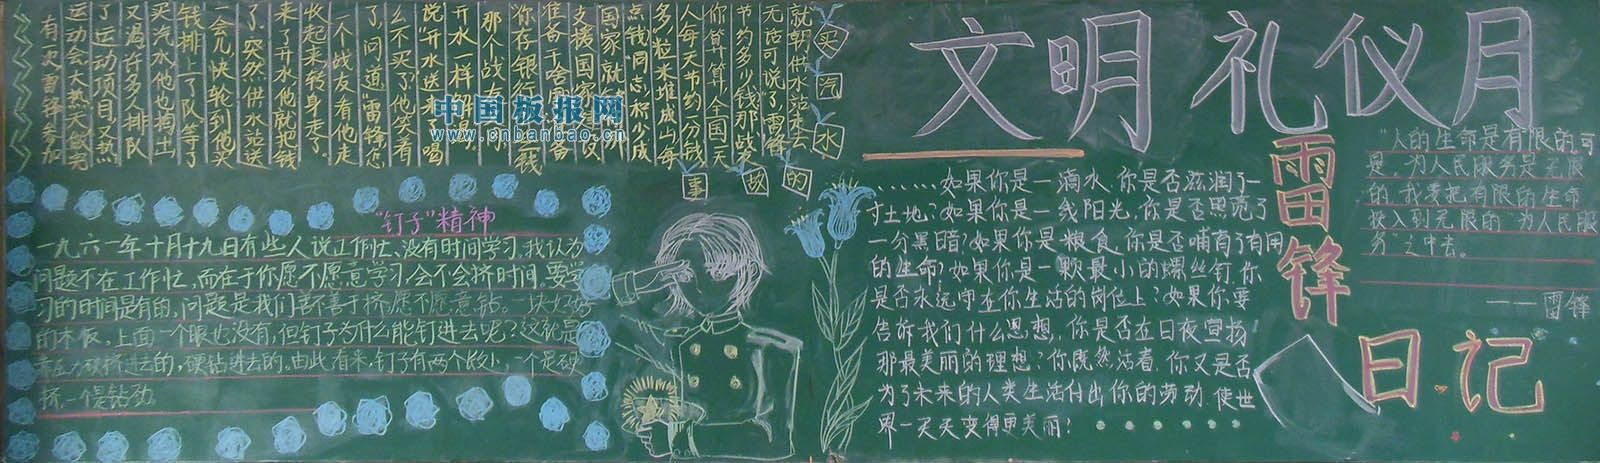 文明礼仪月
雷锋
日记
"人的生命是有限的可
是,为人民服务是无限
的,我要把有限的生命
投入到无限的"为人民服
务"之中去。
——雷锋
……如果你是一滴水,你是否滋润了一
寸土地?如果你是一线阳光,你是否照亮了
一分黑暗?如果你是粮食,你是否哺育了有用
的生命?如果你是一颗最小的螺丝钉,你
是否永远守在你生活的岗位上?如果你要
告诉我们什么思想,你是否在日夜宣扬
那最美丽的理想?你既然活着,你又是否
为了未来的人类生活付出你的劳动,使世
界一天天变得更美丽?
买汽水的故事
有一次雷锋参加
运动会大热天做完
了运动项目又热
又渴许多人排队
买汽水他也掏出
钱排上了队等了
一会儿快轮到他买
了,突然供水站送
来了开水他就把钱
收起来转身走了。
一个战友看他走
了,问道雷锋怎
么不买了他笑着
说"开水送来了喝
开水一样解渴
那个战友
你存银行 钱
准备干啥 备
支援国家 设
国家就
点钱"同志和少成
多"粒米堆成山"每
人每天节约一分钱
你算算,全国一天
节约多少钱那战友
无话可说了,雷锋
就朝供水站走去
中国板报网
www.cnbanbao.cn
"钉子"精神
一九六一年十月十九日有些人说工作忙、没有时间学习,我认为
问题不在工作忙,而在于你愿不愿意学习,会不会挤时间。要学
习的时间是有的,问题是我们善不善于挤,愿不愿意钻。一块好好
的木板,上面一个眼也没有,但钉子为什么能钉进去呢?这就是
靠压力硬挤进去的,硬钻进去的。由此看来,钉子有两个长处,一个是硬
挤,一是钻劲